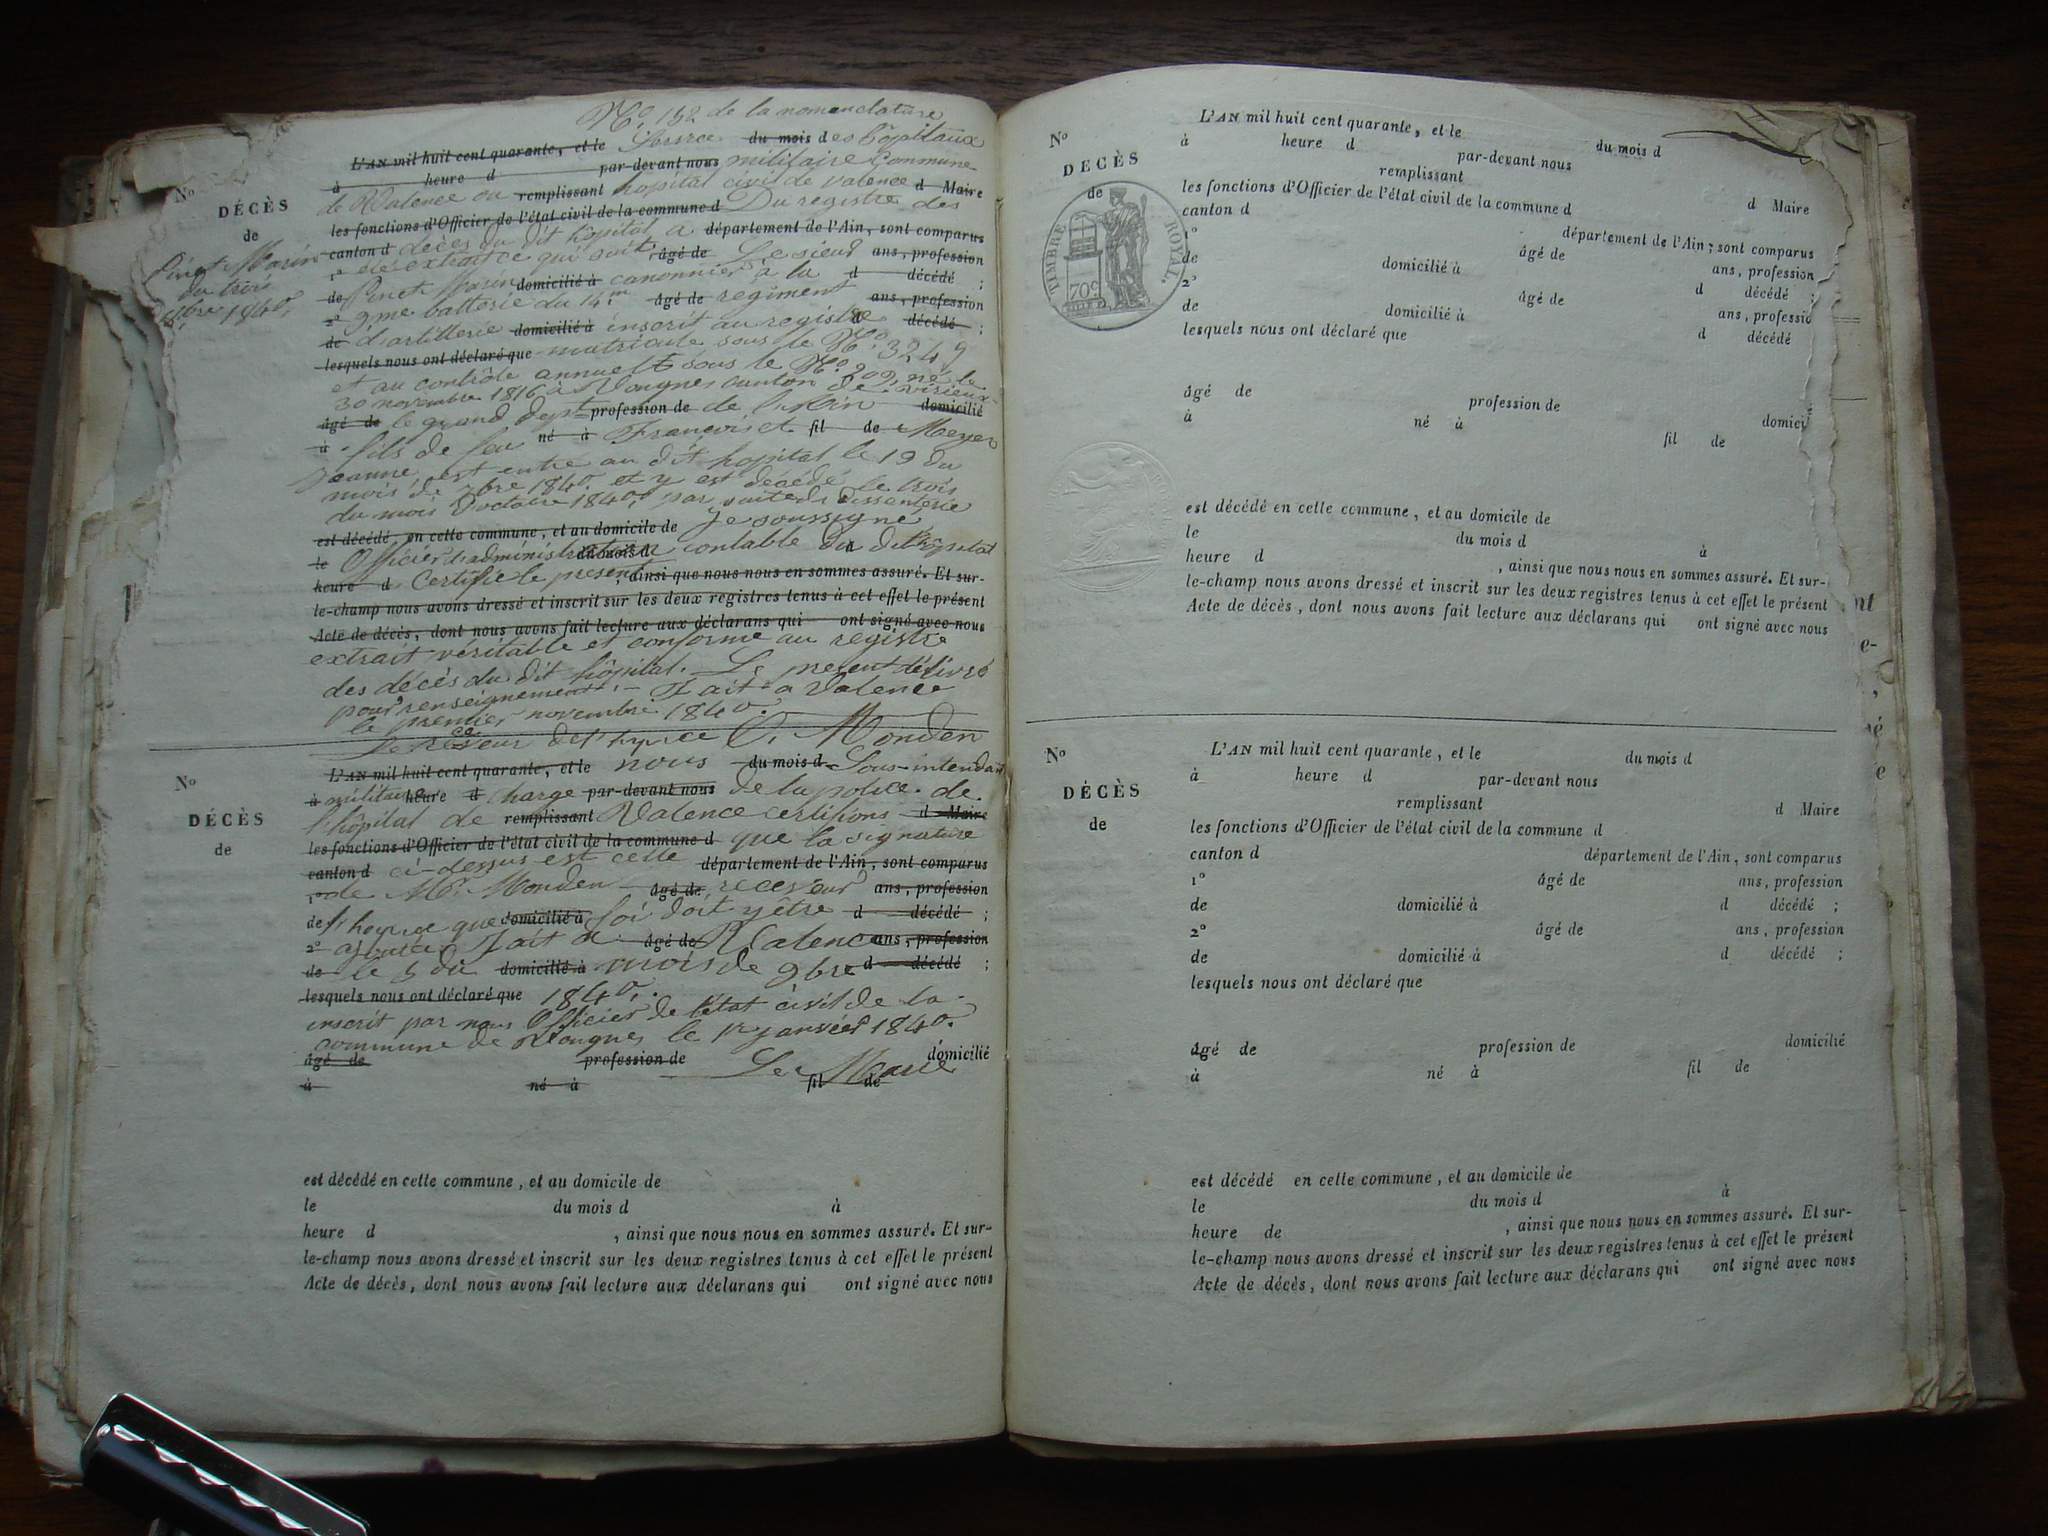 No. 132 de la nomenclature
L'AN mil huit cent quarante, et le du mois des hôpitaux
à heure d par-devant nous militaire Commune
de Valence ou remplissant hopital civil de valence d Maire
No
DÉCÈS
les fonctions d'Officier de l'état civil de la commune d Du registre des
de
canton d décès du dit hôpital a département de l'Ain, sont comparus
1° été extrait ce qui suit âgé de Le sieur ans, profession
Pinet Marin
du trois
8bre 1840.
de Pinet Marin domicilié à canonnier à la d décédé ;
2° 9me batterie du 14me âgé de regiment ans, profession
de d'artillerie domicilié à inscrit au registre d décédé ;
lesquels nous ont déclaré que matricule sous le No. 3249
et au contrôle annuel sous le No. 209, né le
30 novembre 1816 à Vongnes canton de virieux
âgé de le grand, dept profession de de l'ain domicilié
à fils de feu né à François et fil de Meyer
Jeanne, est entré au dit hopital le 19 du
mois de 7bre 1840. et y est décédé le trois
du mois d'octobre 1840, par suite de dissenterie
est décédé, en cette commune, et au domicile de Je soussigné,
le Officier d'administration du mois d contable du dit hopital
heure d Certifie le present, ainsi que nous nous en sommes assuré. Et sur-
le-champ nous avons dressé et inscrit sur les deux registres tenus à cet effet le présent
Acte de décès, dont nous avons fait lecture aux déclarans qui ont signé avec nous
extrait véritable et conforme au registre
des décès du dit hôpital. Le present délivré
pour renseignement. Fait a Valence
le premier novembre 1840.
Le receveur de l'hospice Monden
No
DÉCÈS
de
L'AN mil huit cent quarante, et le nous du mois d Sous-intendant
à militaire heure d Charge par-devant nous de la police de
l'hôpital de remplissant Valence certifions d Maire
les fonctions d'Officier de l'état civil de la commune d que la signature
canton d ci-dessus est celle département de l'Ain, sont comparus
1° de Mr Monden âgé de receveur ans, profession
de l'hospice que domicilié à foi doit y être d décédé ;
2° ajoutée Fait a âgé de Valence ans, profession
de le 5 du domicilié à mois de 9bre d décédé ;
lesquels nous ont déclaré que 1840.
inscrit par nous Officier de l'état civil de la
commune de Vongnes le 1r janvier 1840.
âgé de profession de domicilié
Le Maire
à né à fil de
est décédé en cette commune, et au domicile de
le du mois d à
heure d , ainsi que nous nous en sommes assuré. Et sur-
le-champ nous avons dressé et inscrit sur les deux registres tenus à cet effet le présent
Acte de décès, dont nous avons fait lecture aux déclarans qui ont signé avec nous
No
DÉCÈS
de
TIMBRE ROYAL.
70c.
L'AN mil huit cent quarante, et le du mois d
à heure d par-devant nous
remplissant
les fonctions d'Officier de l'état civil de la commune d d Maire
canton d département de l'Ain ; sont comparus
1° âgé de ans, profession
de domicilié à d décédé ;
2° âgé de ans, professio
de domicilié à d décédé
lesquels nous ont déclaré que
âgé de profession de domicil
à né à fil de
est décédé en cette commune, et au domicile de
le du mois d à
heure d , ainsi que nous nous en sommes assuré. Et sur-
le-champ nous avons dressé et inscrit sur les deux registres tenus à cet effet le présent
Acte de décès, dont nous avons fait lecture aux déclarans qui ont signé avec nous
No
DÉCÈS
de
L'AN mil huit cent quarante, et le du mois d
à heure d par-devant nous
remplissant d Maire
les fonctions d'Officier de l'état civil de la commune d
canton d département de l'Ain, sont comparus
1° âgé de ans, profession
de domicilié à d décédé ;
2° âgé de ans, profession
de domicilié à d décédé ;
lesquels nous ont déclaré que
âgé de profession de domicilié
à né à fil de
est décédé en cette commune, et au domicile de
le du mois d à
heure de , ainsi que nous nous en sommes assuré. Et sur-
le-champ nous avons dressé et inscrit sur les deux registres tenus à cet effet le présent
Acte de décès, dont nous avons fait lecture aux déclarans qui ont signé avec nous